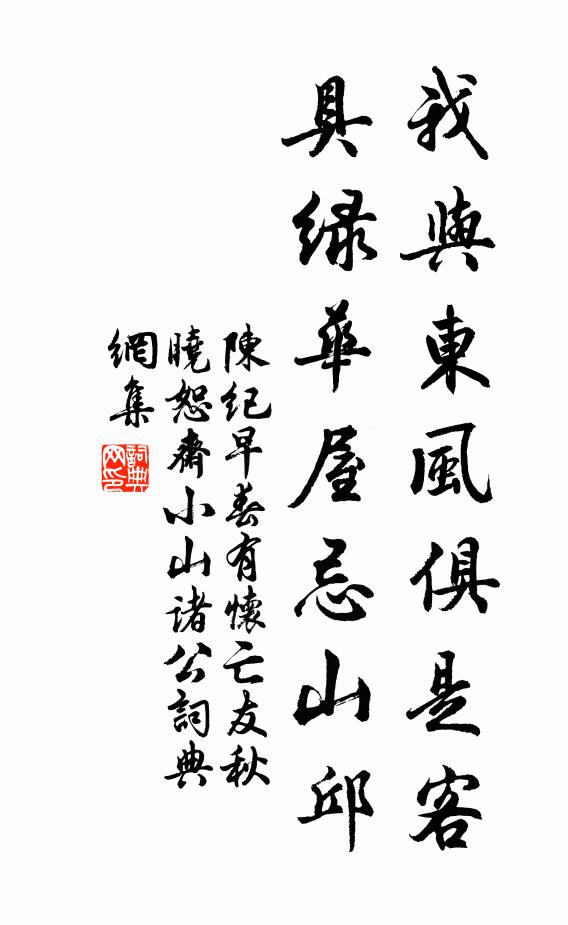 我與東風俱是客
具緑華屋忌山邱
陳紀早春有懷亡友秋
曉恕齋小山諸公詞典
網集
詞典
网印